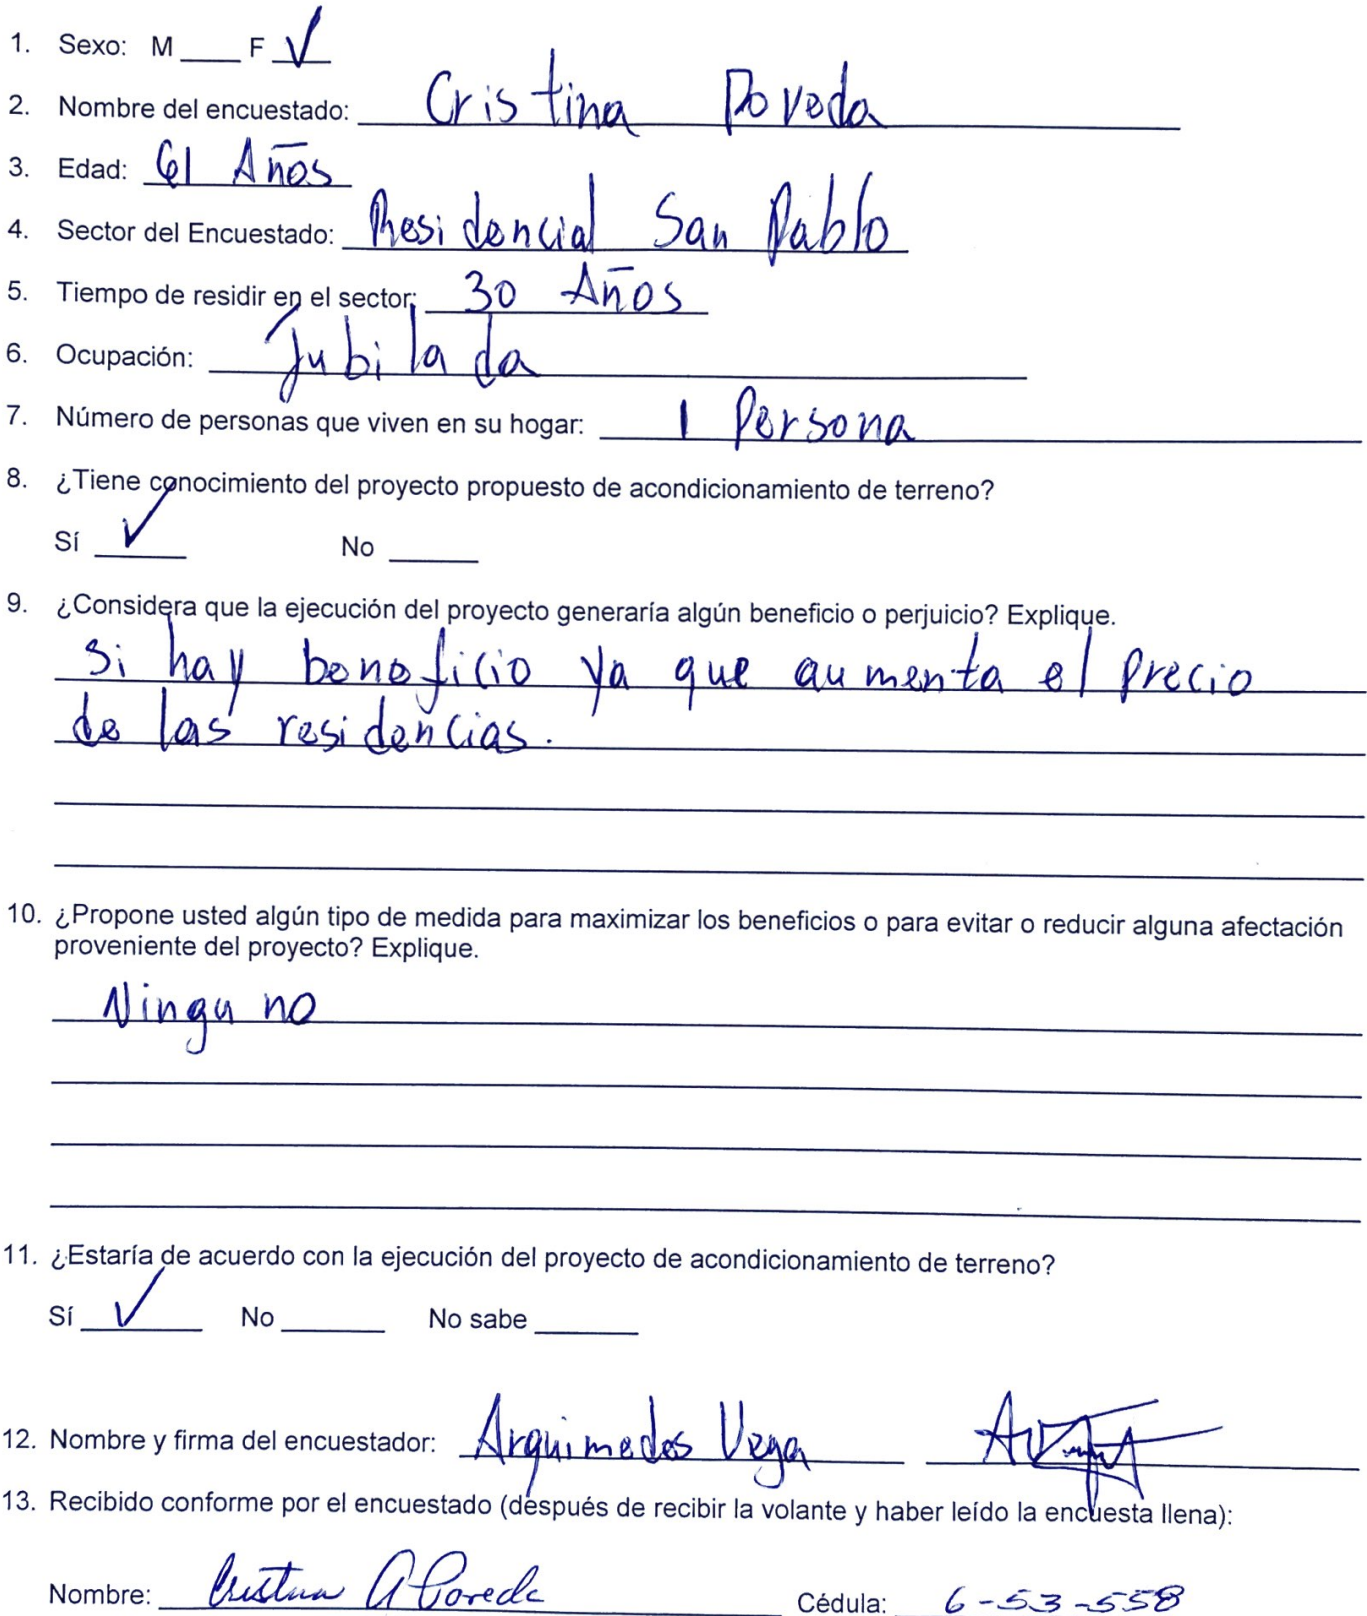 1. Sexo: M ____ F √
2. Nombre del encuestado: Cristina Poveda
3. Edad: 61 Años
4. Sector del Encuestado: Residencial San Pablo
5. Tiempo de residir en el sector: 30 Años
6. Ocupación: Jubilada
7. Número de personas que viven en su hogar: 1 Persona
8. ¿Tiene conocimiento del proyecto propuesto de acondicionamiento de terreno?
Sí √ No ____
9. ¿Considera que la ejecución del proyecto generaría algún beneficio o perjuicio? Explique.
Si hay beneficio ya que aumenta el precio
de las residencias.
10. ¿Propone usted algún tipo de medida para maximizar los beneficios o para evitar o reducir alguna afectación
proveniente del proyecto? Explique.
Ninguno
11. ¿Estaría de acuerdo con la ejecución del proyecto de acondicionamiento de terreno?
Sí √ No ____ No sabe ____
12. Nombre y firma del encuestador: Arquimedes Vega
13. Recibido conforme por el encuestado (después de recibir la volante y haber leído la encuesta llena):
Nombre: Cristina A Poveda Cédula: 6-53-558